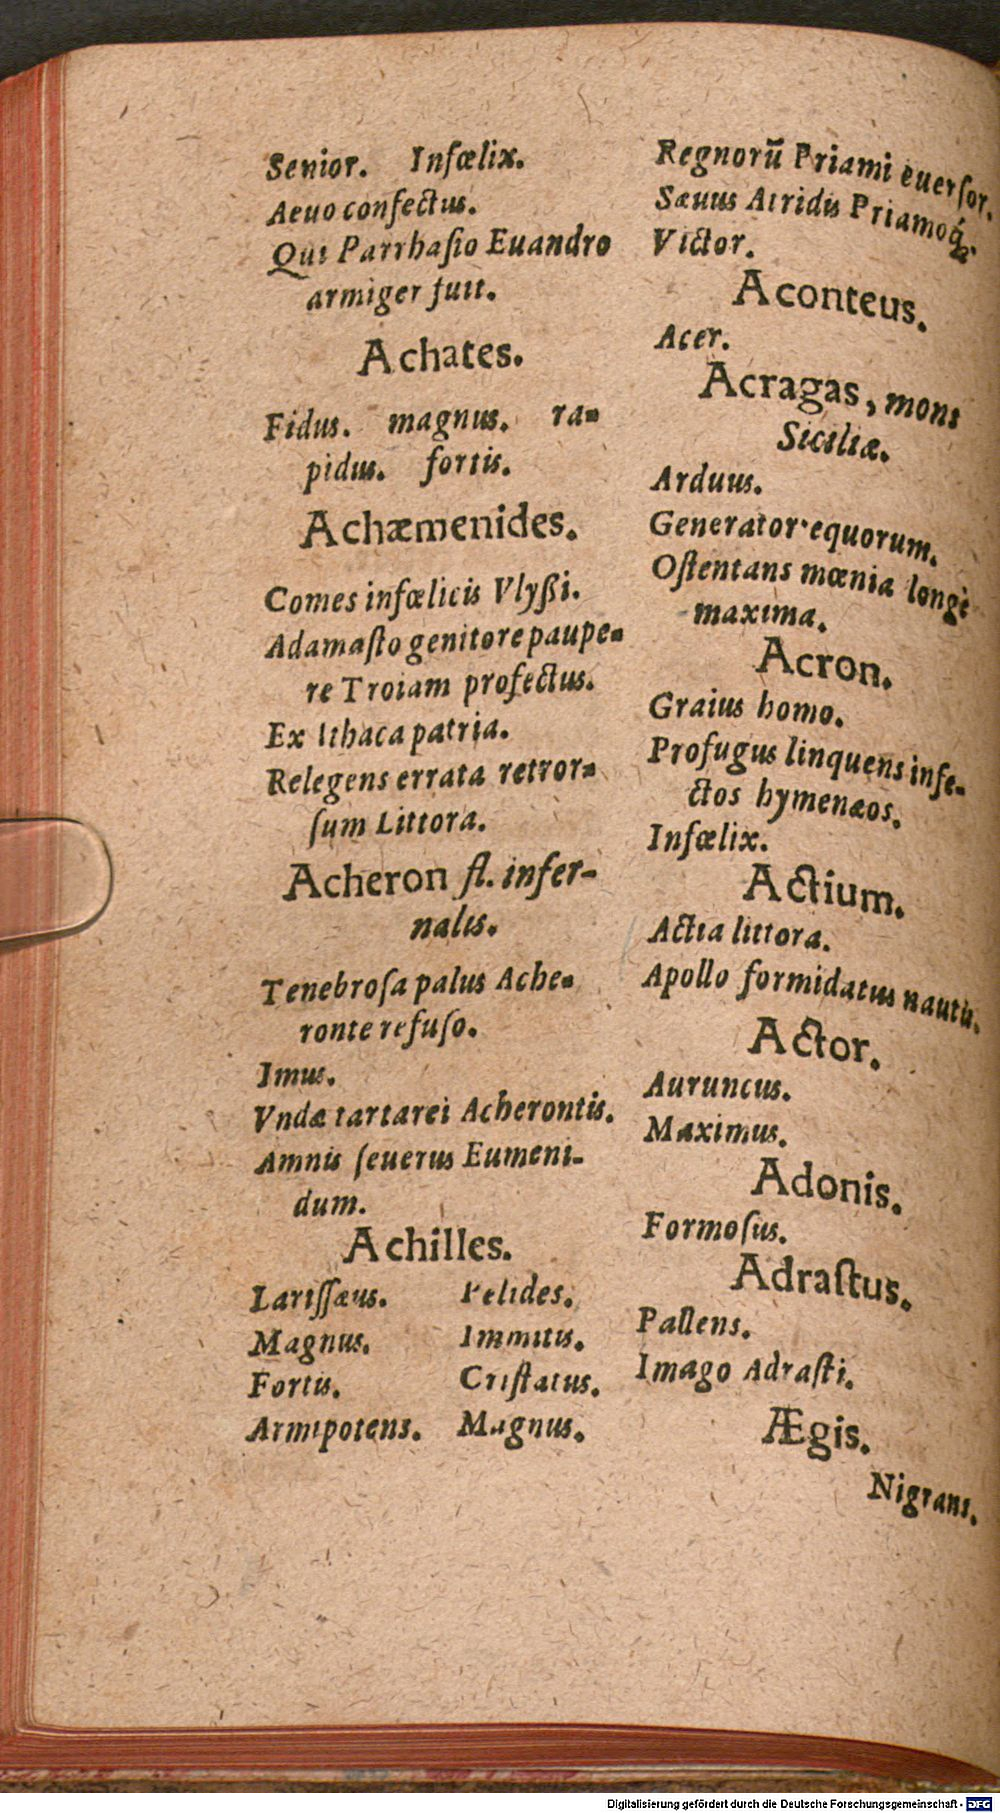 Senior. Infœlix.
Aeuo confectus.
Qui Parrhaſio Euandro
armiger fuit.
Achates.
Fidus. magnus. ra-
pidus. fortis.
Achæmenides.
Comes infœlicis Vlyßi.
Adamaſto genitore paupe-
re Troiam profectus.
Ex Ithaca patria.
Relegens errata retror-
ſum Littora.
Acheron fl. infer-
nalis.
Tenebroſa palus Ache-
ronte refuſo.
Imus.
Vndæ tartarei Acherontis.
Amnis ſeuerus Eumeni-
dum.
Achilles.
Lariſſæus. Pelides.
Magnus. Immitis.
Fortis. Criſtatus.
Armipotens. Magnus.
Regnorū Priami euerſor.
Sæuus Atridis Priamoq́;.
Victor.
Aconteus.
Acer.
Acragas, mons
Siciliæ.
Arduus.
Generator equorum.
Oſtentans mœnia longè
maxima.
Acron.
Graius homo.
Profugus linquens infe-
ctos hymenæos.
Infœlix.
Actium.
Actia littora.
Apollo formidatus nautis.
Actor.
Auruncus.
Maximus.
Adonis.
Formoſus.
Adraſtus.
Pallens.
Imago Adraſti.
Ægis.
Nigrans.
Digitalisierung gefördert durch die Deutsche Forschungsgemeinschaft - DFG